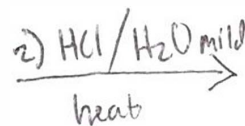 2) HCl/H₂O mild
heat